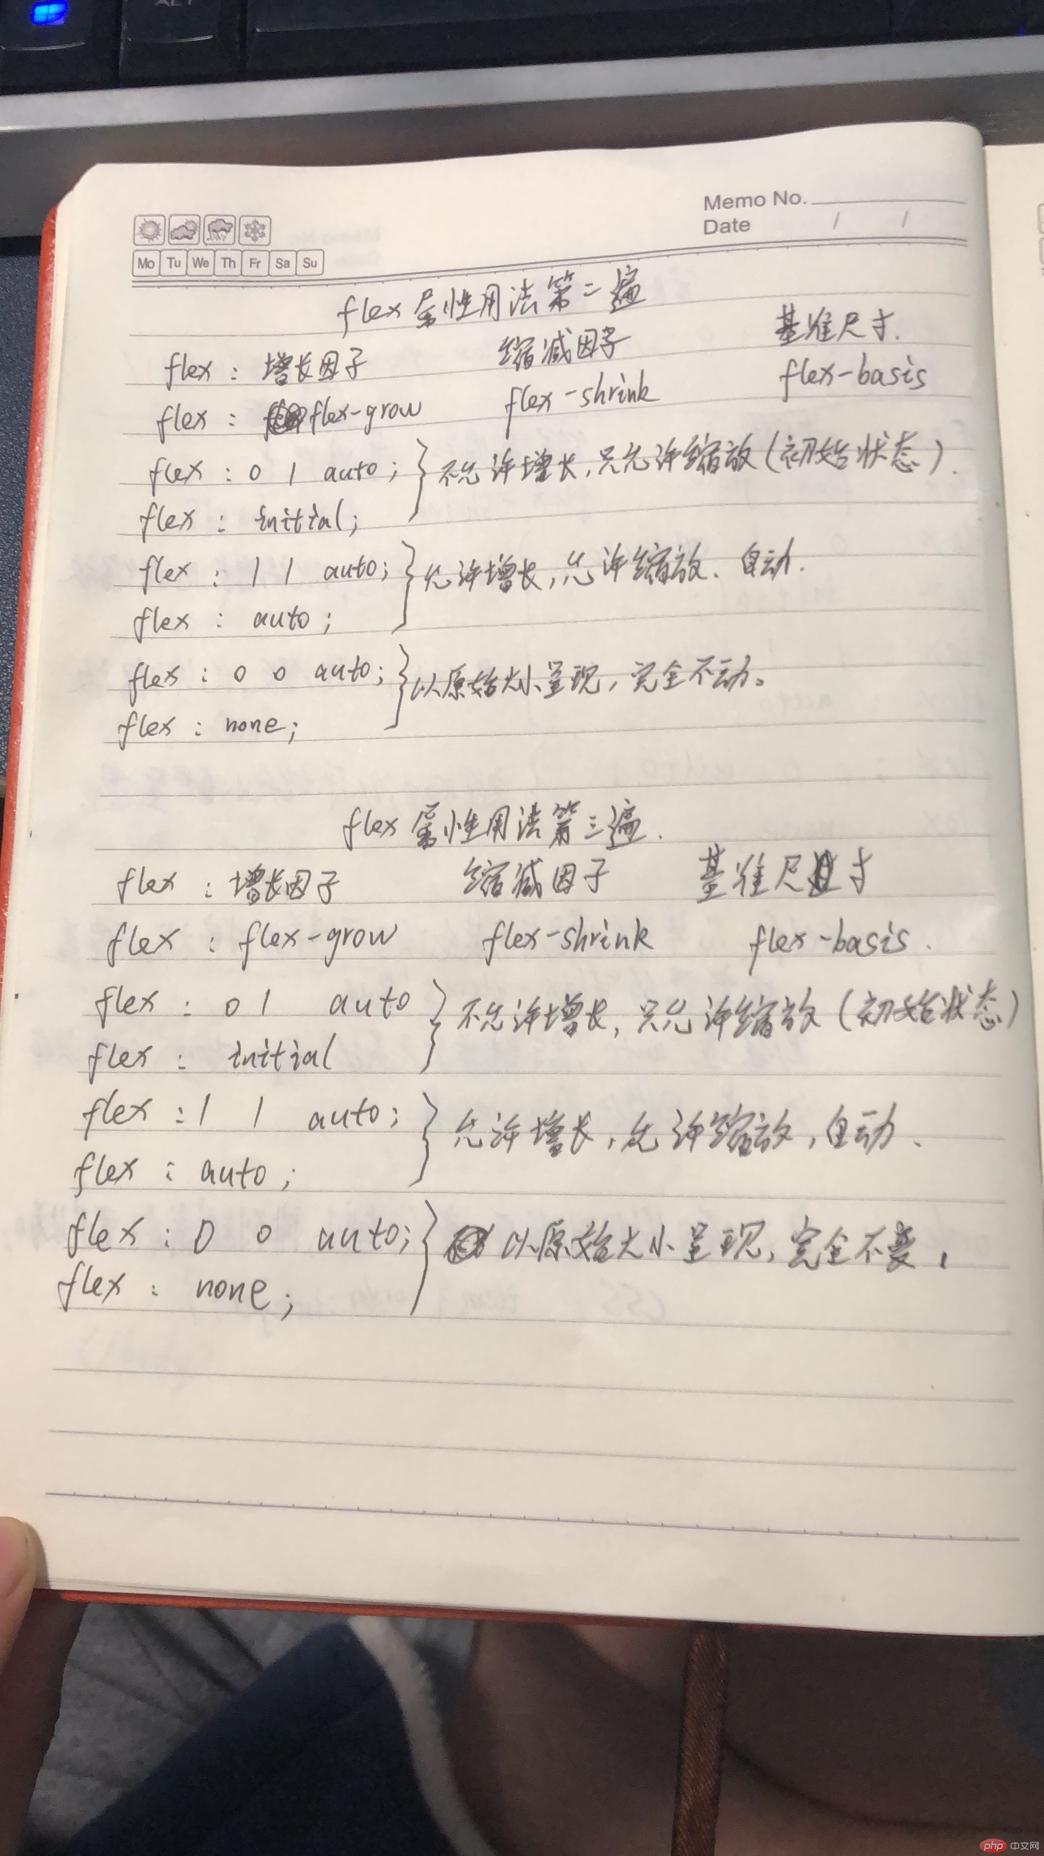 ALT
Memo No.
Date / /
Mo Tu We Th Fr Sa Su
flex属性用法第二遍
flex : 增长因子 缩减因子 基准尺寸.
flex : flex-grow flex-shrink flex-basis
flex : 0 1 auto; } 不允许增长,只允许缩放(初始状态).
flex : initial;
flex : 1 1 auto; } 允许增长,允许缩放、自动.
flex : auto ;
flex : 0 0 auto; } 以原始大小呈现,完全不动。
flex : none;
flex属性用法第三遍.
flex : 增长因子 缩减因子 基准尺寸
flex : flex-grow flex-shrink flex-basis.
flex : 0 1 auto } 不允许增长,只允许缩放(初始状态)
flex : initial
flex : 1 1 auto; } 允许增长,允许缩放,自动.
flex : auto ;
flex : 0 0 auto; } 以原始大小呈现,完全不变,
flex : none ;
php 中文网